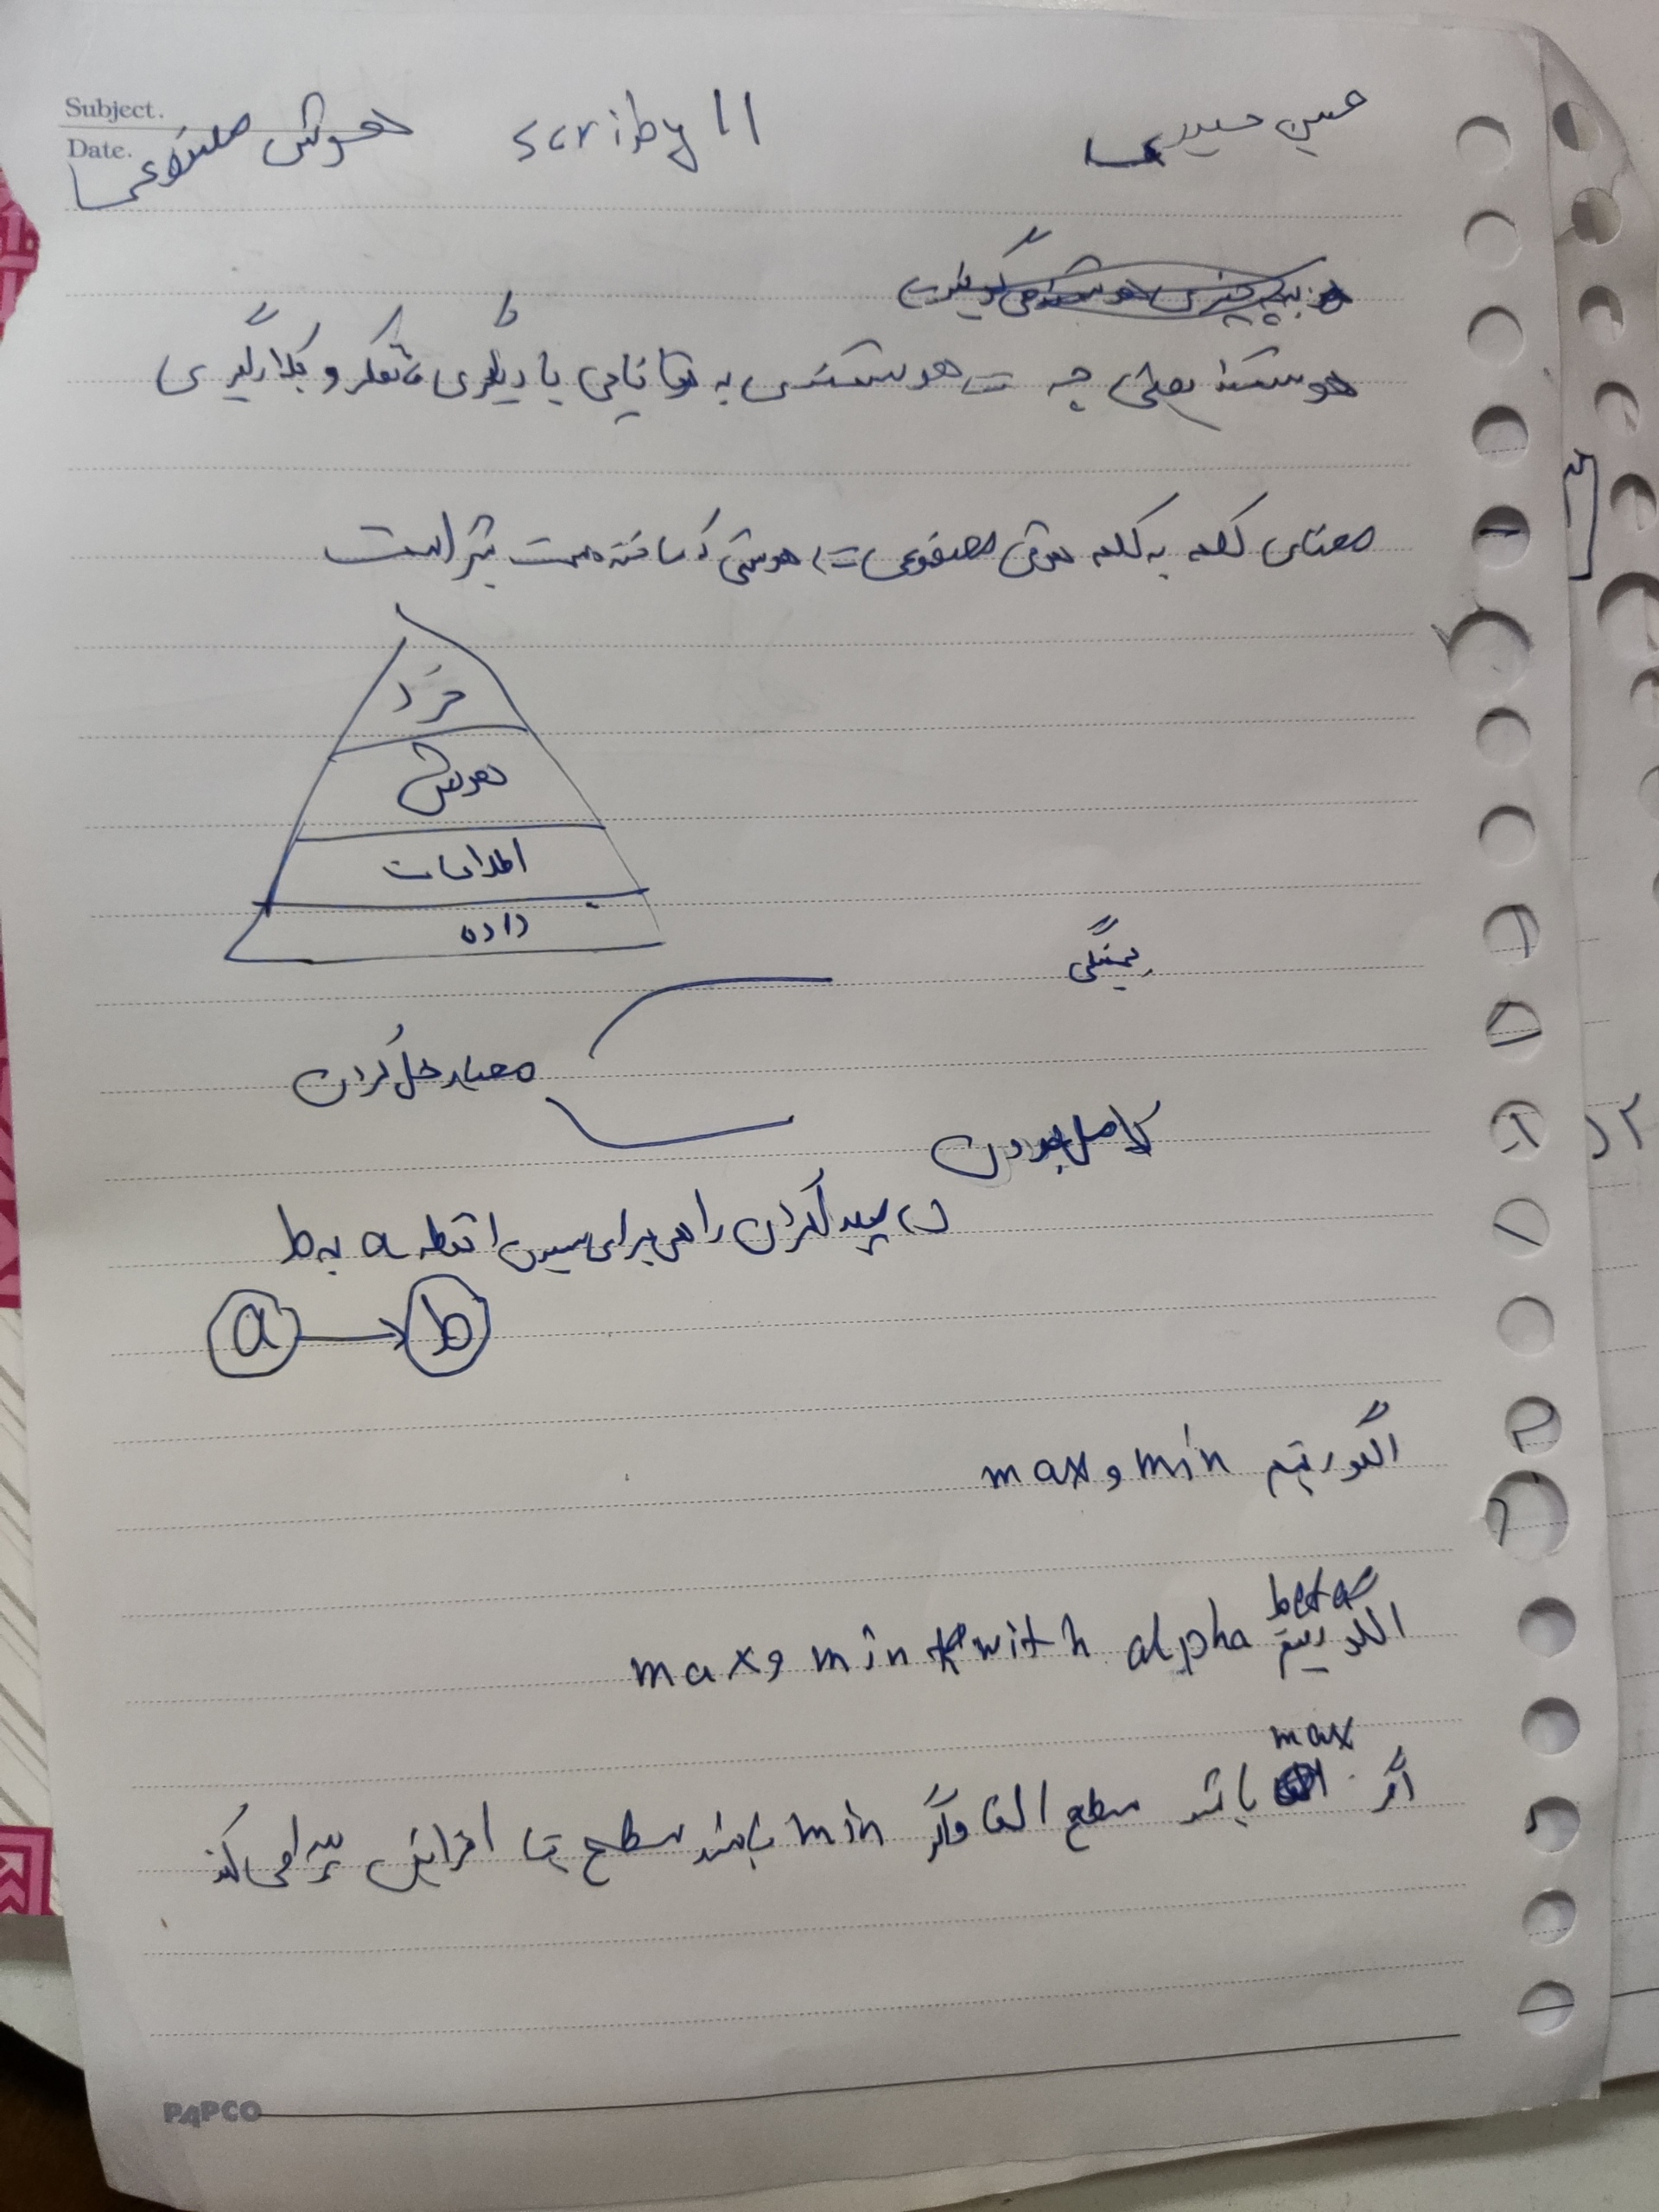 Subject.
Date.
هوش مصنوعی scriby 11 حسین حیدری
هوشمند یعنی چه ← هوشمندی به توانایی یادگیری تفکر و بکارگیری
معنای کلمه به کلمه هوش مصنوعی ← هوشی که ساخته دست بشر است
خرد
هوش
اطلاعات
داده
معیار حل کردن
کامل بودن
پیدا کردن راهی برای رسیدن از نقطه a به b
a → b
الگوریتم min و max
الگوریتم max و min with alpha beta
اگر max باشد سطح الفا و اگر min باشد سطح بتا افزایش پیدا می کند
PAPCO